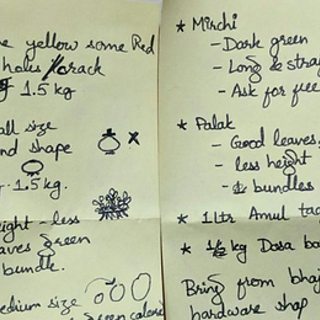 e yellow some Red
holes / crack
1.5 kg
all size
nd shape
1.5 kg.
eight - less
aves green
bundle.
edium size
green
* Mirchi
- Dark green
- Long & stra
- Ask for free
* Palak
- Good leaves,
- less height
- bundles
* 1 ltr Amul ta
* 1/2 kg Dosa ba
Bring from bhaj
hardware shop